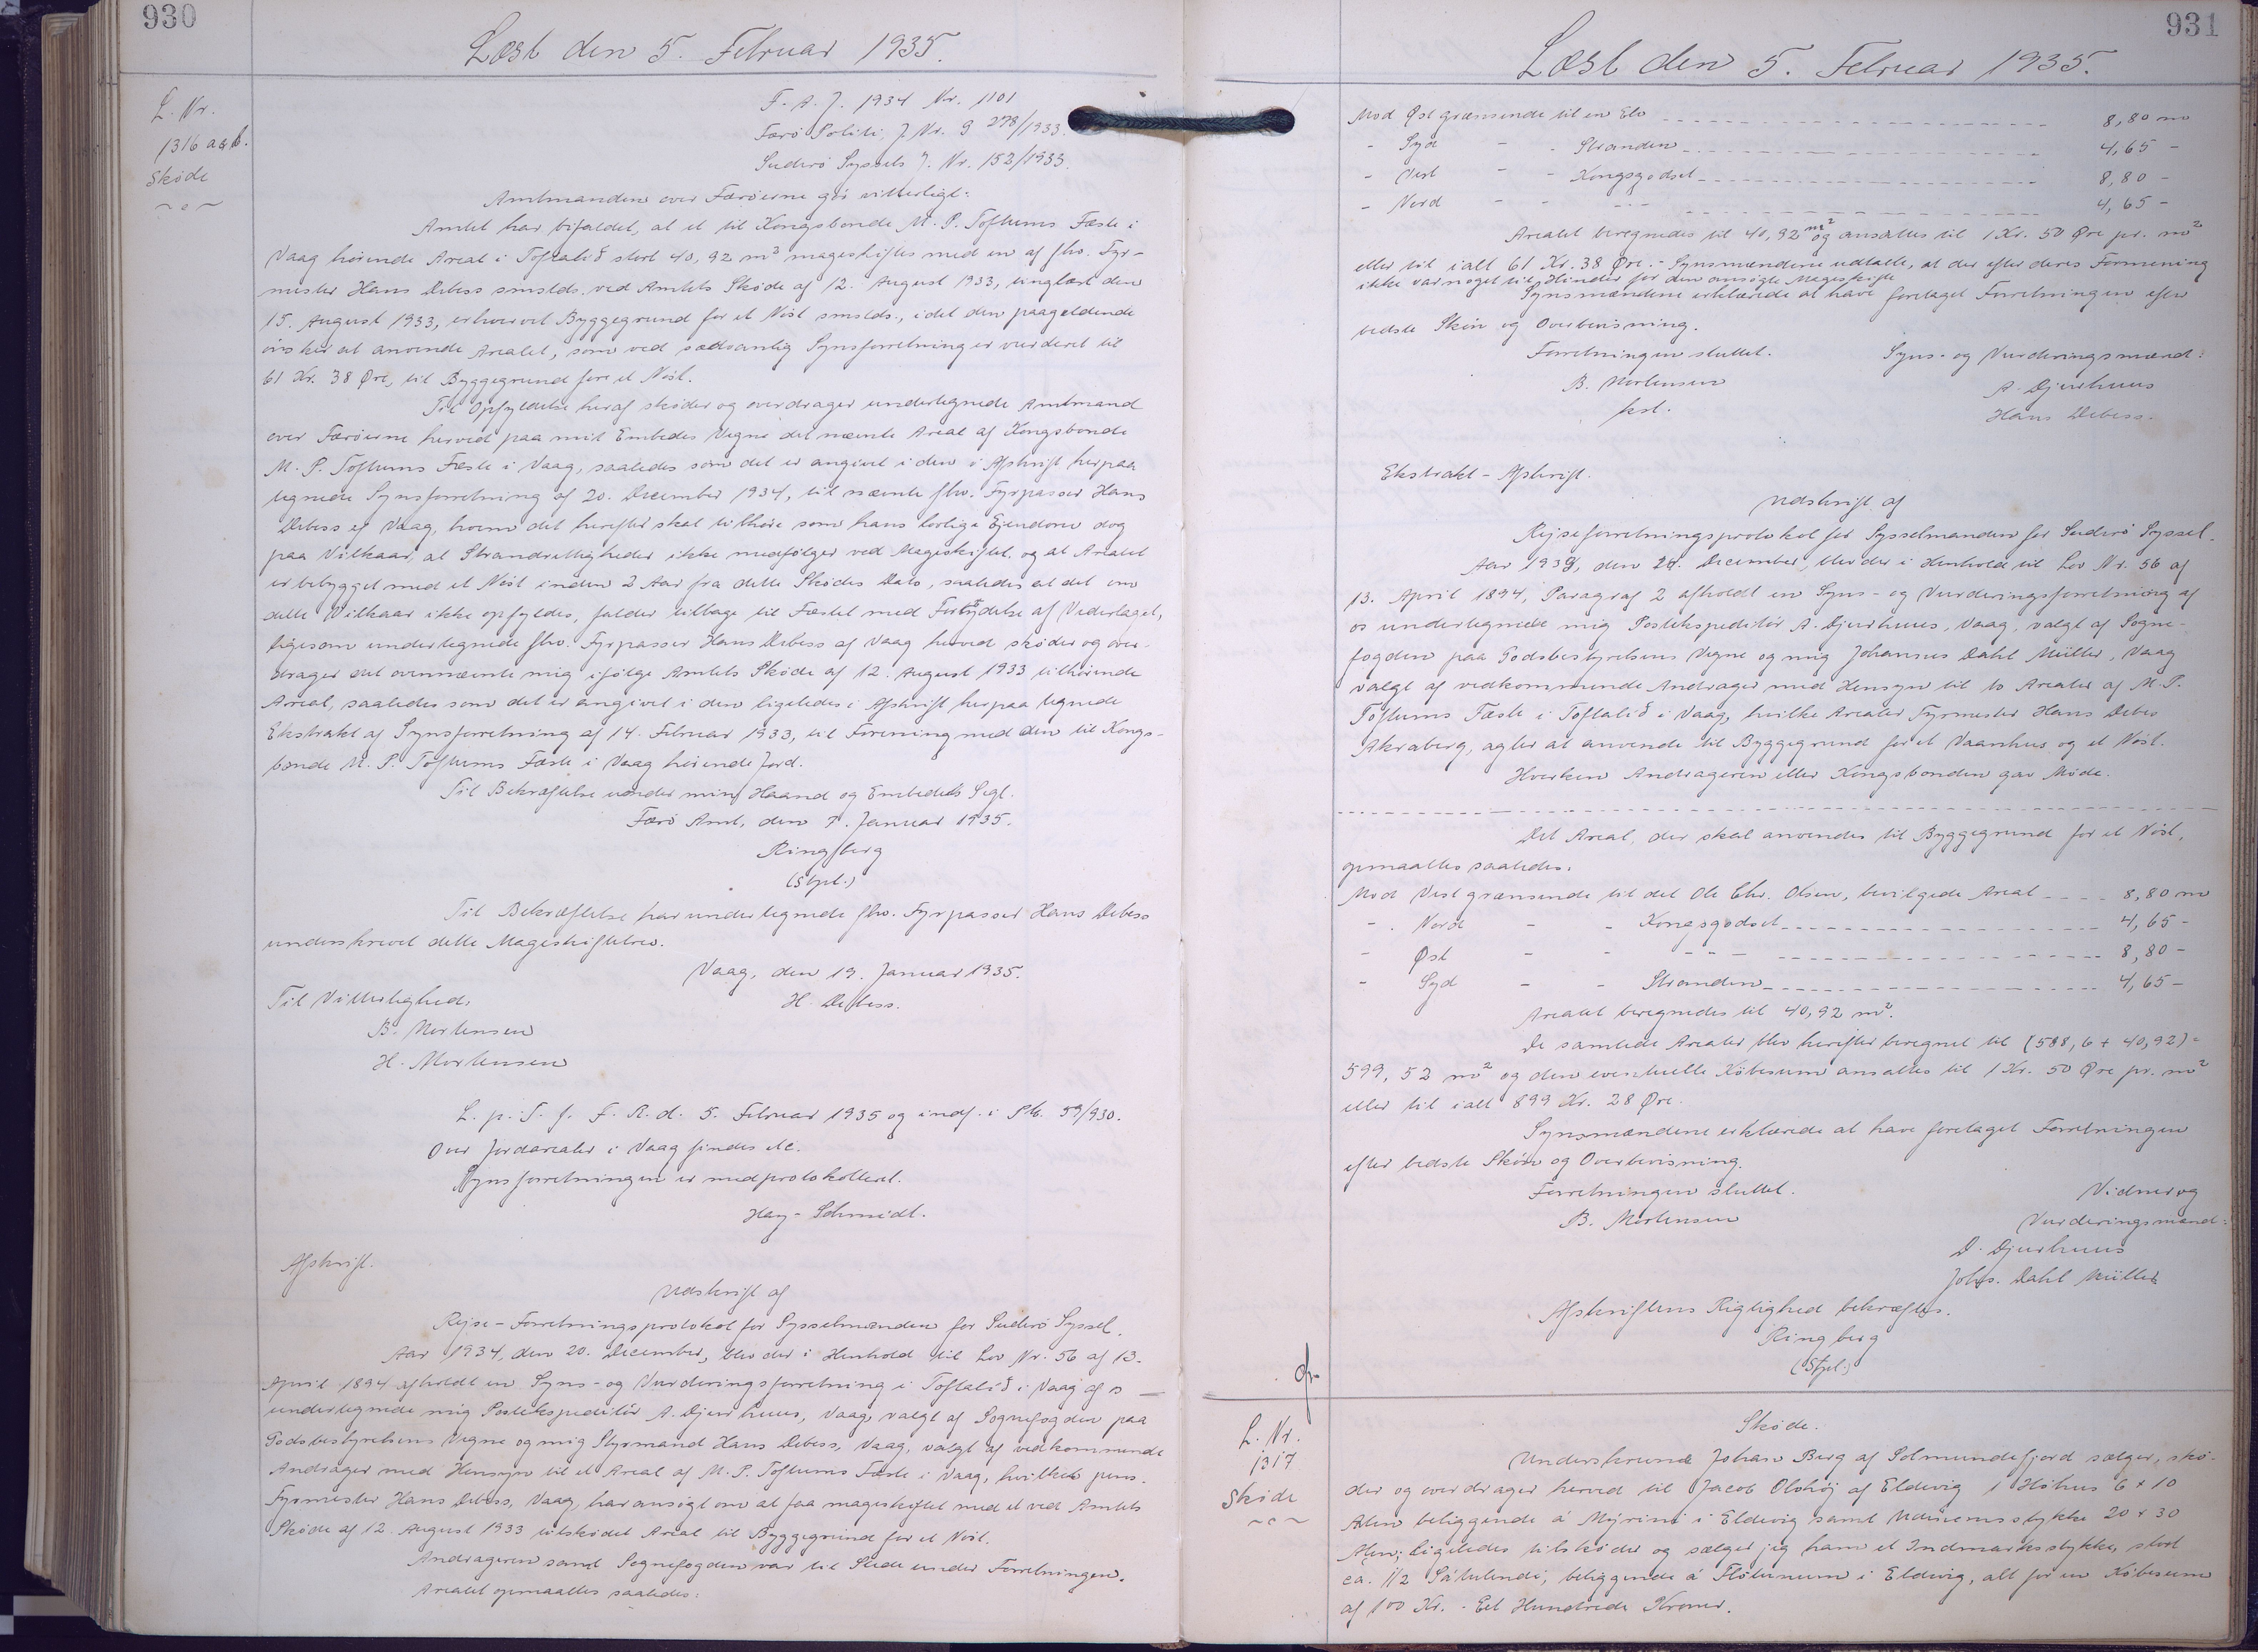 930
Læst den 5. Februar 1935.
L. Nr.
1316 a & b.
Skøde
F. A. J. 1934 Nr. 1101
Færø Politi J. Nr. 9 278/1933.
Suderø Syssels J. Nr. 152/1933.
Amtmanden over Færøerne gør vitterligt:
Amtet har bifaldet, at et til Kongsbonde M. P. Toftums Fæste i
Vaag hørende Areal i Toftalið stort 40,92 m² mageskiftes med en af fhv. Fyr-
mester Hans Debess smstds. ved Amtets Skøde af 12. August 1933, tinglæst den
15. August 1933, erhvervet Byggegrund for et Nøst smstds., idet den paagældende
ønsker at anvende Arealet, som ved sædvanlig Synsforretning er vurderet til
61 Kr. 38 Øre, til Byggegrund for et Nøst.
Til Opfyldelse heraf skøder og overdrager undertegnede Amtmand
over Færøerne herved paa mit Embedes Vegne det nævnte Areal af Kongsbonde
M. P. Toftums Fæste i Vaag, saaledes som det er angivet i den i Afskrift herpaa
tegnede Synsforretning af 20. December 1934, til nævnte fhv. Fyrpasser Hans
Debess af Vaag, hvem det herefter skal tilhøre som hans lovlige Ejendom dog
paa Vilkaar, at Strandrettigheder ikke medfølger ved Mageskiftet, og at Arealet
er bebygget med et Nøst inden 2 Aar fra dette Skødes Dato, saaledes at det om
dette Vilkaar ikke opfyldes, falder tilbage til Fæstet med Fortydelse af Vederlaget,
ligesom undertegnede fhv. Fyrpasser Hans Debess af Vaag herved skøder og over-
drager det ovennævnte mig ifølge Amtets Skøde af 12. August 1933 tilhørende
Areal, saaledes som det er angivet i den ligeledes i Afskrift herpaa tegnede
Ekstrakt af Synsforretning af 14. Februar 1933, til Forening med den til Kongs-
bonde M. P. Toftums Fæste i Vaag hørende Jord.
Til Bekræftelse under min Haand og Embedets Segl.
Færø Amt, den 7. Januar 1935.
Ringberg
(Stpl.)
Til Bekræftelse har undertegnede fhv. Fyrpasser Hans Debess
underskrevet dette Mageskiftebrev.
Vaag, den 19. Januar 1935.
Til Vitterlighed:
H. Debess.
B. Mortensen
H. Mortensen
L. p. T. f. F. R. d. 5. Februar 1935 og indf. i Ptk. 59/930.
Over Jordarealer i Vaag findes etc.
Synsforretningen er medprotokolleret.
Hey-Schmidt.
Afskrift.
Udskrift af
Rejse-Forretningsprotokol for Sysselmanden for Suderø Syssel.
Aar 1934, den 20. December, blev der i Henhold til Lov Nr. 56 af 13.
April 1894 afholdt en Syns- og Vurderingsforretning i Toftalið i Vaag af os
undertegnede mig Postekspeditør A. Djurhuus, Vaag, valgt af Sognefogden paa
Godsbestyrelsens Vegne og mig Styrmand Hans Debess, Vaag, valgt af vedkommende
Andrager med Hensyn til et Areal af M. P. Toftums Fæste i Vaag, hvilket pens.
Fyrmester Hans Debess, Vaag, har ansøgt om at faa mageskiftet med et ved Amtets
Skøde af 12. August 1933 tilskødet Areal til Byggegrund for et Nøst.
Andrageren samt Sognefogden var til Stede under Forretningen.
Arealet opmaaltes saaledes:
931
Læst den 5. Februar 1935.
Mod Øst grænsende til en Elv 8,80 m
- Syd - - Stranden 4,65 -
- Vest - - Kongsgodset 8,80 -
- Nord - - - - - 4,65 -
Arealet beregnedes til 40,92 m² og ansattes til 1 Kr. 50 Øre pr. m²
eller til ialt 61 Kr. 38 Øre. - Synsmændene udtalte, at der efter deres Formening
ikke var noget til Hinder for den ansøgte Mageskifte.
Synsmændene erklærede at have foretaget Forretningen efter
bedste Skøn og Overbevisning.
Forretningen sluttet.
Syns- og Vurderingsmænd:
B. Mortensen
A. Djurhuus
fest.
Hans Debess.
Ekstrakt-Afskrift.
Udskrift af
Rejseforretningsprotokol for Sysselmanden for Suderø Syssel.
Aar 1932, den 24. December, blev der i Henhold til Lov Nr. 56 af
13. April 1894, Paragraf 2 afholdt en Syns- og Vurderingsforretning af
os undertegnede mig Postekspeditør A. Djurhuus, Vaag, valgt af Sogne-
fogden paa Godsbestyrelsens Vegne og mig Johannes Dahl Müller, Vaag
valgt af vedkommende Andrager med Hensyn til to Arealer af M. P.
Toftums Fæste i Toftalið i Vaag, hvilke Arealer Fyrmester Hans Debes
Akraberg, agter at anvende til Byggegrund for et Vaanhus og et Nøst.
Hverken Andrageren eller Kongsbonden gav Møde.
Det Areal, der skal anvendes til Byggegrund for et Nøst,
opmaaltes saaledes:
Mod Vest grænsende til det Ole Chr. Olsen, bevilgede Areal 8,80 m
- Nord - - Kongsgodset 4,65 -
- Øst - - - - - 8,80 -
- Syd - - Stranden 4,65 -
Arealet beregnedes til 40,92 m².
De samlede Arealer blev herefter beregnet til (588,6 + 40,92) =
599,52 m² og den eventuelle Købesum ansattes til 1 Kr. 50 Øre pr. m²
eller til ialt 899 Kr. 28 Øre.
Synsmændene erklærede at have foretaget Forretningen
efter bedste Skøn og Overbevisning.
Forretningen sluttet.
Vidner og
B. Mortensen
Vurderingsmænd:
D. Djurhuus
Johs. Dahl Müller
Afskriftens Rigtighed bekræftes.
Ringberg
(Stpl.)
L. Nr.
1317
Skøde
Skøde.
Underskrevne Johan Berg af Solmundefjord sælger, skø-
der og overdrager herved til Jacob Olshøj af Eldevig 1 Høhus 6 x 10
Alen beliggende á Mýrini i Eldevig samt Udhiemsstykke 20 x 30
Alen; ligeledes tilskøder og sælger jeg ham et Indmarksstykke, stort
ca. 1½ Sátulendi, beliggende á Fløtunum i Eldevig, alt for en Købesum
af 100 Kr. - Eet Hundrede Kroner.